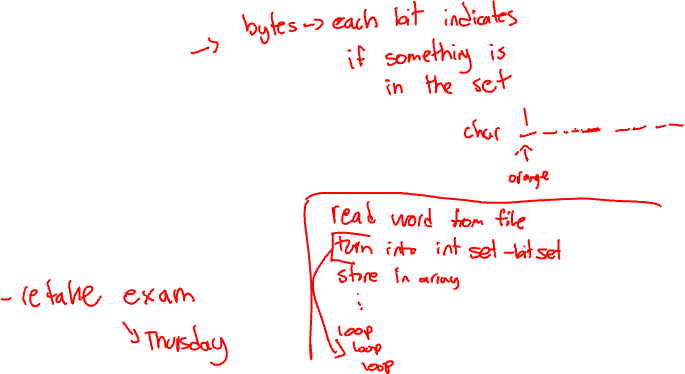 → bytes → each bit indicates
if something is
in the set
char 1
orange
read word from file
turn into int set - bit set
store in array
⋮
loop
loop
loop
- retake exam
↳ Thursday